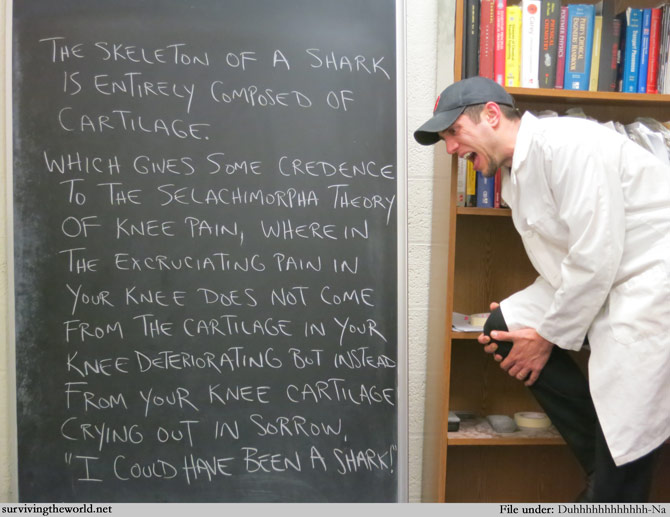 THE SKELETON OF A SHARK
IS ENTIRELY COMPOSED OF
CARTILAGE.
WHICH GIVES SOME CREDENCE
TO THE SELACHIMORPHA THEORY
OF KNEE PAIN, WHEREIN
THE EXCRUCIATING PAIN IN
YOUR KNEE DOES NOT COME
FROM THE CARTILAGE IN YOUR
KNEE DETERIORATING BUT INSTEAD
FROM YOUR KNEE CARTILAGE
CRYING OUT IN SORROW,
"I COULD HAVE BEEN A SHARK!"
PERRY'S CHEMICAL
ENGINEERS'
HANDBOOK
survivingtheworld.net
File under: Duhhhhhhhhhhhh-Na